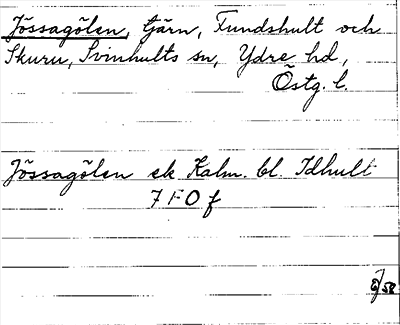 Jössagölen, tjärn, Fundshult och
Skuru, Svinhults sn, Ydre hd,
Östg. l.
Jössagölen ek Kalm. bl. Idhult
7 F 0 f
58